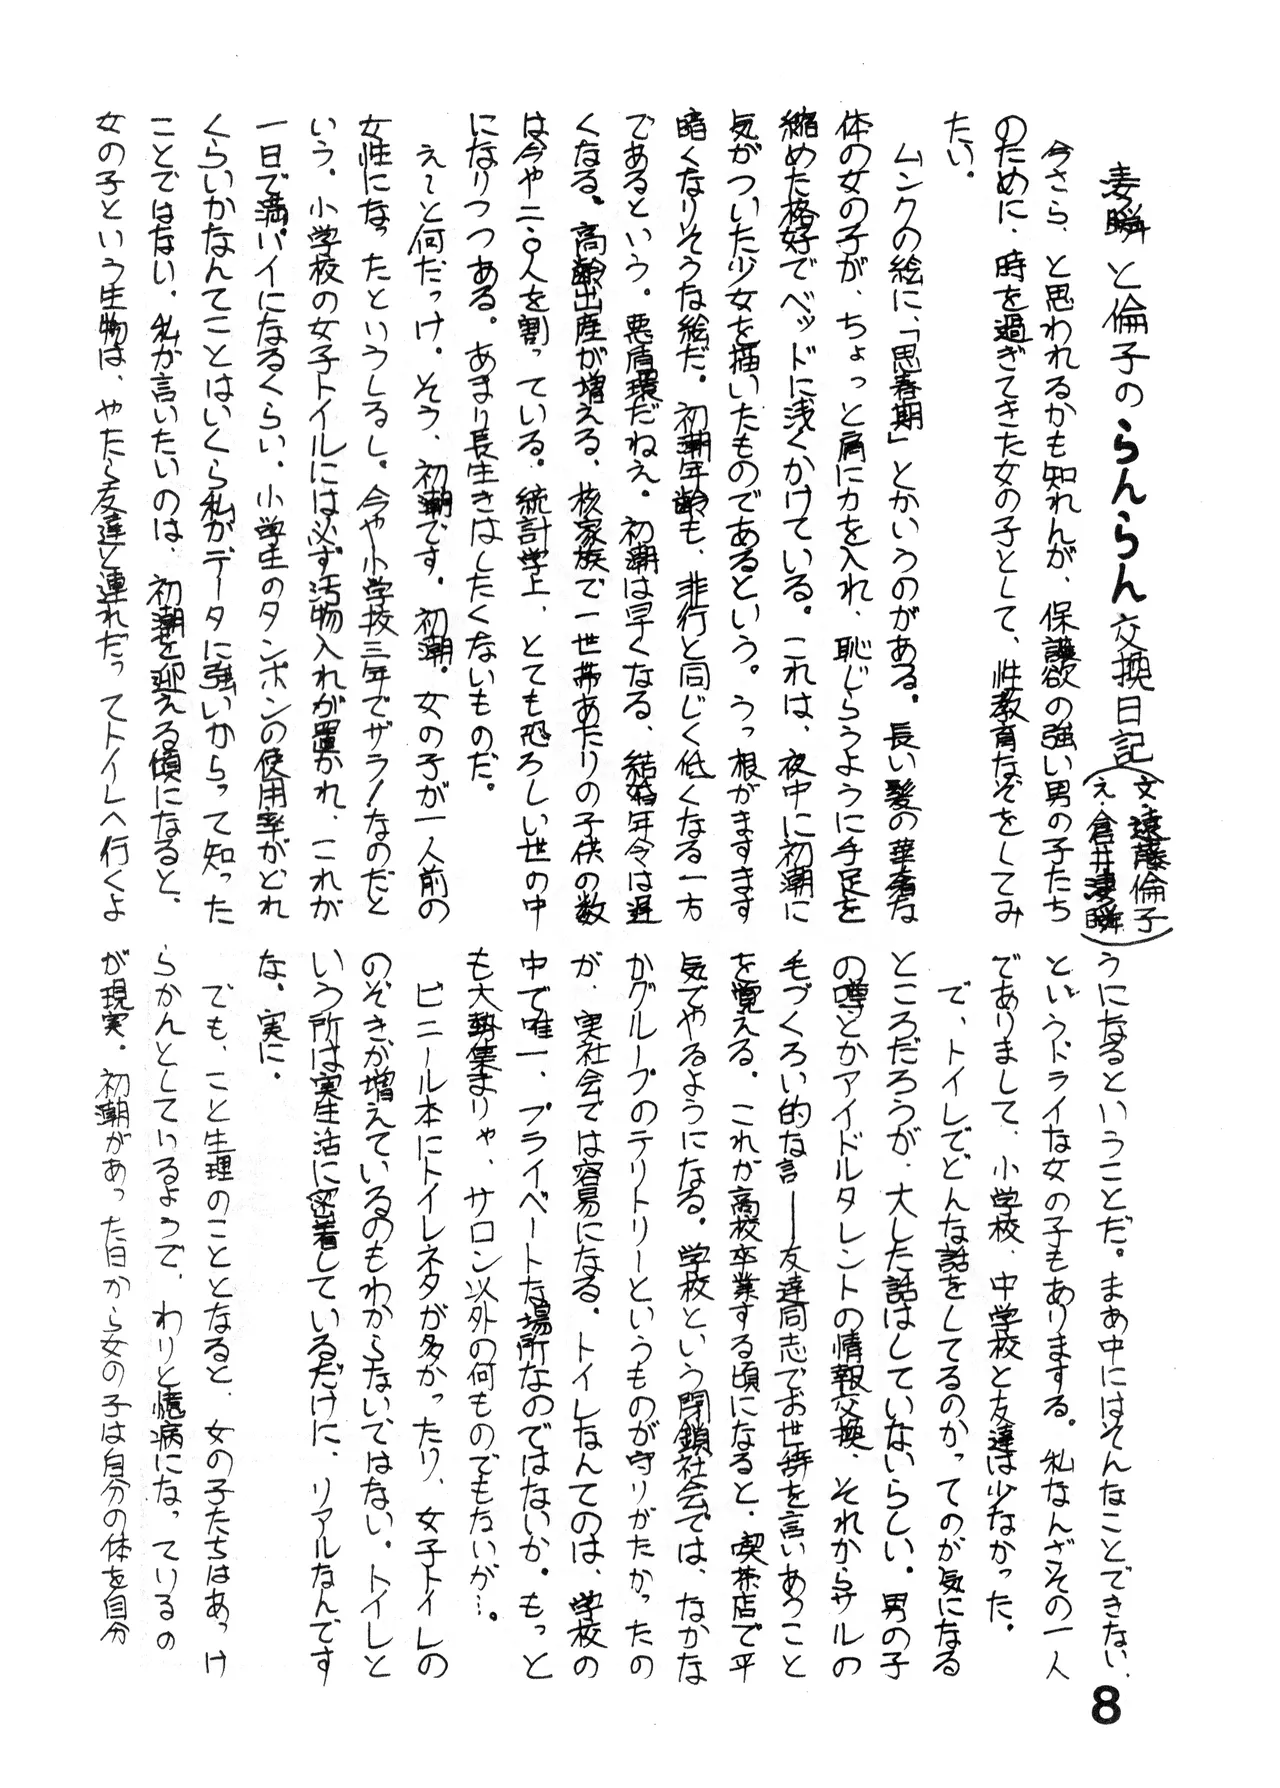 凄瞬と倫子のらんらん交換日記(文・遠藤倫子
え・倉井凄瞬)
今さら、と思われるかも知れんが、保護欲の強い男の子たち
のために、時を過ぎてきた女の子として、性教育なぞをしてみ
たい。
ムンクの絵に、「思春期」とかいうのがある。長い髪の華奢な
体の女の子が、ちょっと肩に力を入れ、恥じらうように手足を
縮めた格好でベッドに浅くかけている。これは、夜中に初潮に
気がついた少女を描いたものであるという。うっ根がますます
暗くなりそうな絵だ。初潮年齢も、非行と同じく低くなる一方
であるという。悪盾環だねえ。初潮は早くなる、結婚年令は遅
くなる。高齢出産が増える、核家族で一世帯あたりの子供の数
は今や二・〇人を割っている。統計学上、とても恐ろしい世の中
になりつつある。あまり長生きはしたくないものだ。
え〜と何だっけ。そう、初潮です。初潮。女の子が一人前の
女性になったというしるし。今や小学校三年でザラ!なのだと
いう。小学校の女子トイルには必ず汚物入れが置かれ、これが
一日で満パイになるくらい。小学生のタンポンの使用率がどれ
くらいかなんてことはいくら私がデータに強いからって知った
ことではない。私が言いたいのは、初潮を迎える頃になると、
女の子という生物は、やたら友達と連れだってトイレへ行くよ
うになるということだ。まあ中にはそんなことできない、
というドライな女の子もありまする。私なんざその一人
でありまして、小学校、中学校と友達は少なかった。
で、トイレでどんな話をしてるのかってのが気になる
ところだろうが、大した話はしていないらしい。男の子
の噂とかアイドルタレントの情報交換、それからサルの
毛づくろい的な言——友達同志でお世辞を言いあうこと
を覚える。これが高校卒業する頃になると、喫茶店で平
気でやるようになる。学校という閉鎖社会では、なかな
かグループのテリトリーというものが守りがたかったの
が、実社会では容易になる。トイレなんてのは、学校の
中で唯一、プライベートな場所なのではないか。もっと
も大勢集まりゃ、サロン以外の何ものでもないが…。
ビニール本にトイレネタが多かったり、女子トイレの
のぞきが増えているのもわからないではない。トイレと
いう所は実生活に密着しているだけに、リアルなんです
な。実に。
でも、こと生理のこととなると、女の子たちはあっけ
らかんとしているようで、わりと憶病になっているの
が現実。初潮があった日から女の子は自分の体を自分
8